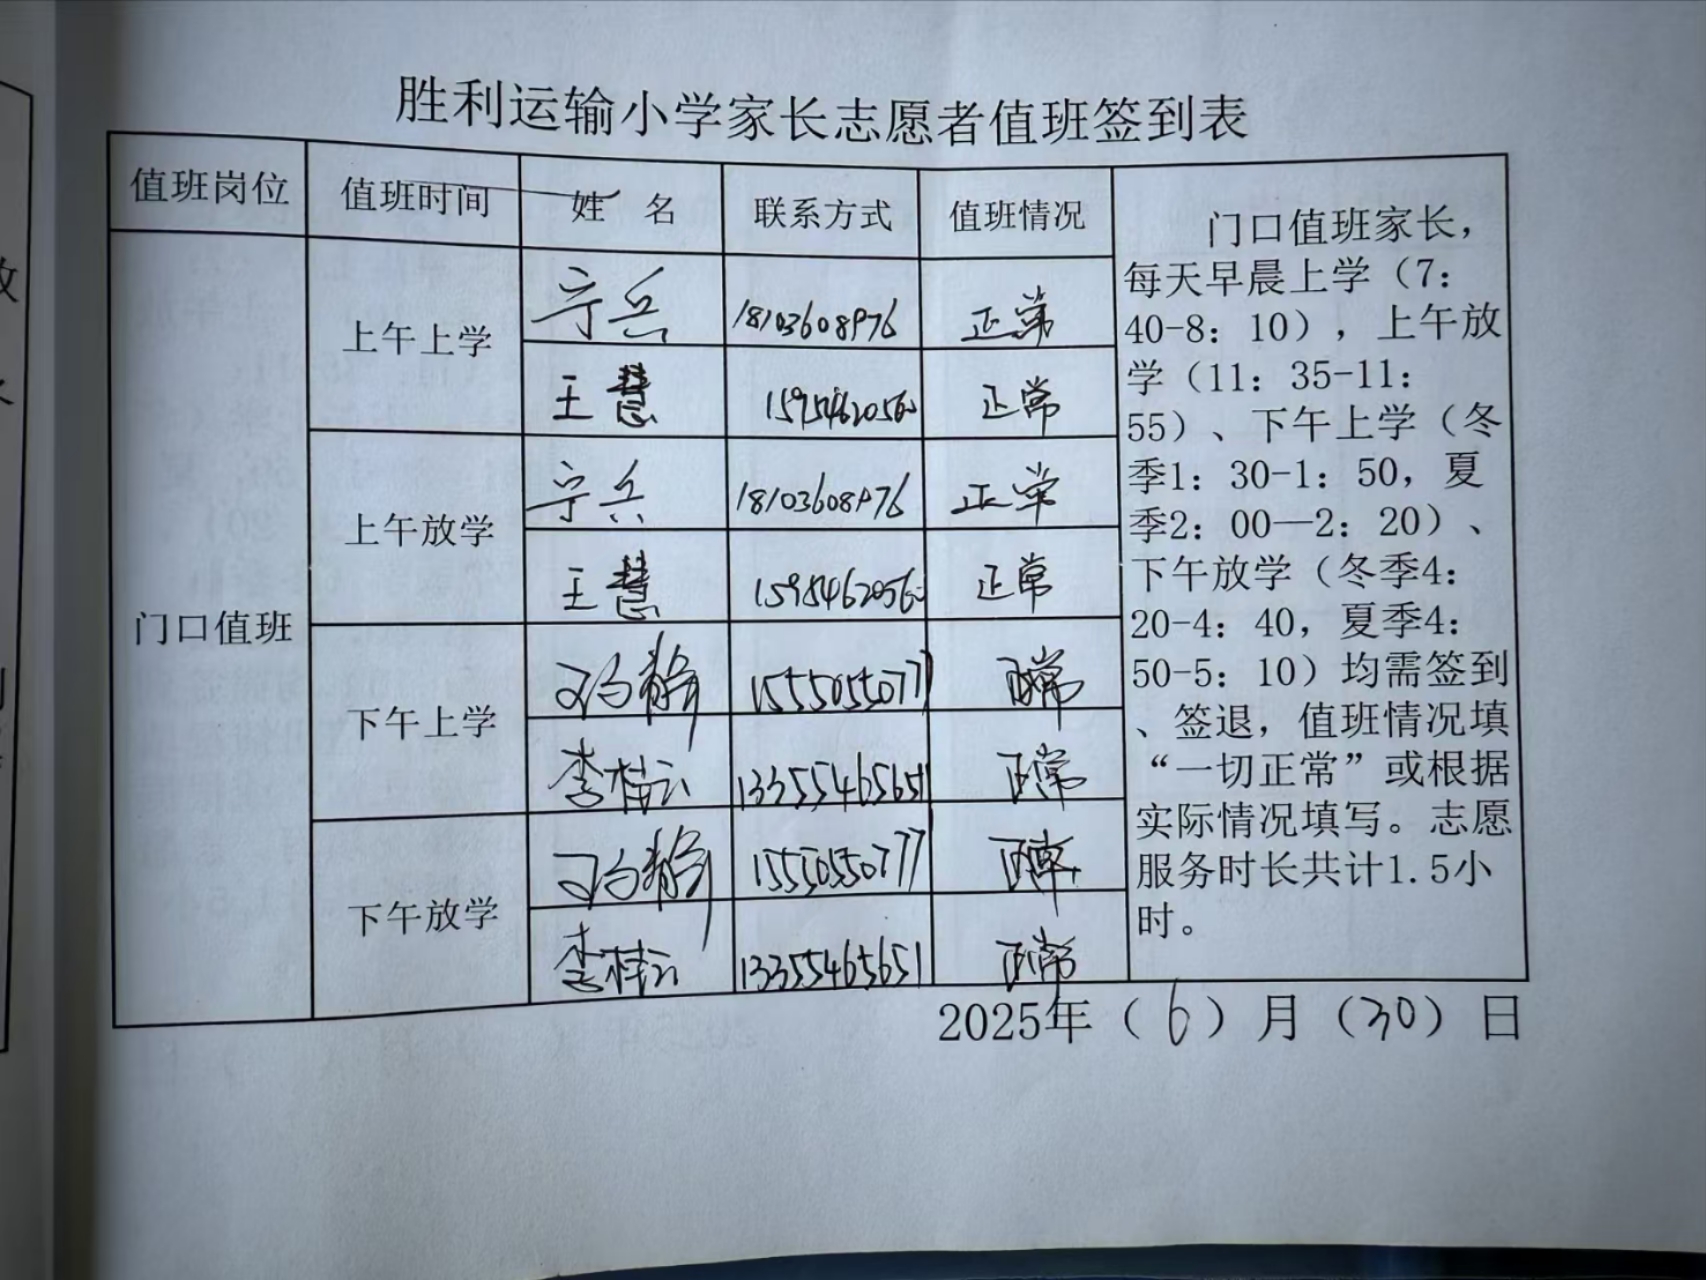 胜利运输小学家长志愿者值班签到表
值班岗位 值班时间 姓 名 联系方式 值班情况
门口值班
上午上学
宁兵 18103608976 正常
王慧 15954620560 正常
上午放学
宁兵 18103608976 正常
王慧 15954620560 正常
下午上学
15550550777 正常
李桂云 13355465651 正常
下午放学
15550550777 正常
李桂云 13355465651 正常
门口值班家长，
每天早晨上学（7：
40-8：10），上午放
学（11：35-11：
55）、下午上学（冬
季1：30-1：50，夏
季2：00—2：20）、
下午放学（冬季4：
20-4：40，夏季4：
50-5：10）均需签到
、签退，值班情况填
“一切正常”或根据
实际情况填写。志愿
服务时长共计1.5小
时。
2025年（6）月（30）日